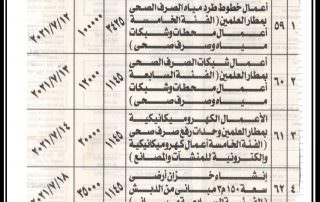 ١ ٥٩ أعمال خطوط طرد مياه الصرف الصحي ٣٤٢٥ ١٠٠٠٠٠ ٢٠٢١/٧/١٢
بمطار العلمين (الفئة الخامسة
أعمال محطات وشبكات
مياه وصرف صحى)
٢ ٦٠ أعمال شبكات الصرف الصحي ١١٤٥ ١٢٠٠٠ ٢٠٢١/٧/١٣
بمطار العلمين (الفئة السابعة
أعمال محطات وشبكات
مياه وصرف صحى)
٣ ٦١ الأعمال الكهروميكانيكية ١١٤٥ ٢٠٠٠٠ ٢٠٢١/٧/١٤
بمطار العلمين وحدات رفع صرف صحى
(الفئة الخامسة أعمال كهروميكانيكية
وإلكترونية للمنشآت والمصانع)
٤ ٦٢ إنشاء خزان أرضى ١١٤٥ ٣٥٠٠٠ ٢٠٢١/٧/١٨
سعة ١٥٠م٣ مبانى من الدبش